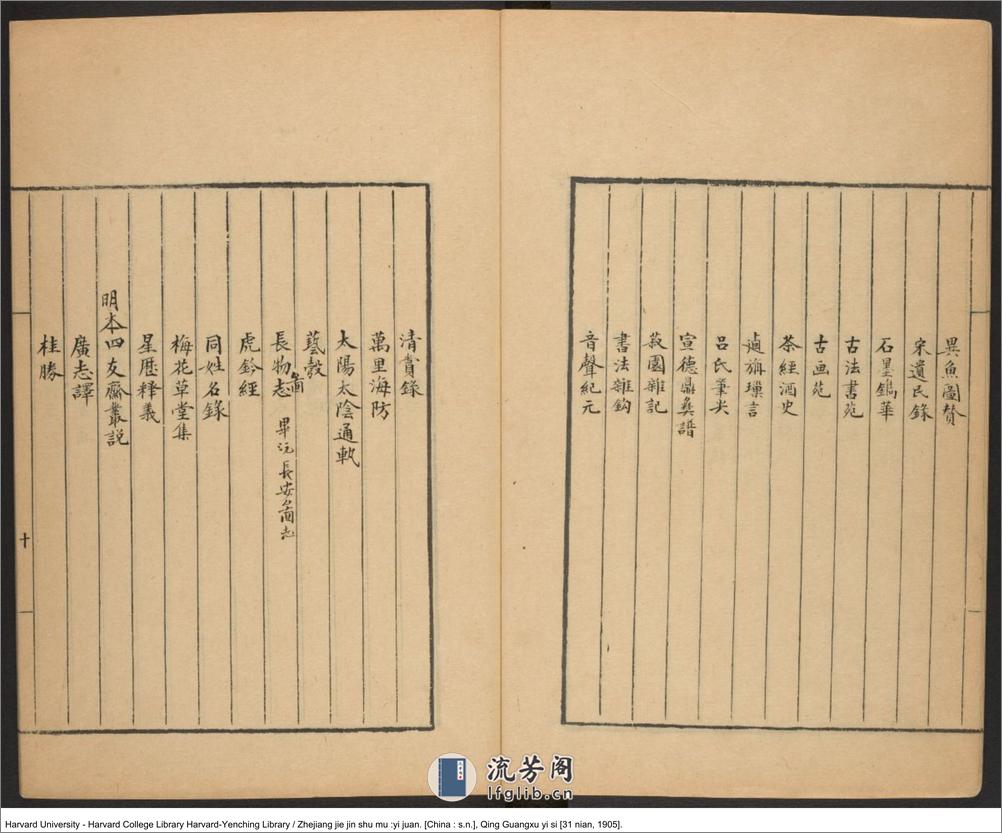 異魚圖贊
宋遺民錄
石墨鐫華
古法書苑
古画苑
茶經酒史
逌旃璅言
呂氏筆尖
宣德鼎彝譜
菽園雜記
書法雜鈎
音聲紀元
清賞錄
萬里海防
太陽太陰通軌
藝彀
長物志 畢沅長安啚志
啚
虎鈐經
同姓名錄
梅花草堂集
星歷釋義
明本四友齋叢說
廣志譯
桂勝
十
流芳阁
lfglib.cn
Harvard University - Harvard College Library Harvard-Yenching Library / Zhejiang jie jin shu mu :yi juan. [China : s.n.], Qing Guangxu yi si [31 nian, 1905].